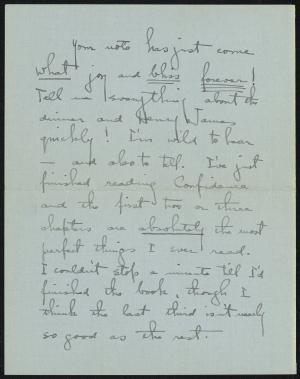 Your note has just come
what joy and bliss forever!
Tell me everything about the
dinner and Henry James
quickly! I'm wild to hear
— and also to tell. I've just
finished reading Confidence
and the first two or three
chapters are absolutely the most
perfect things I ever read.
I couldn't stop a minute till I'd
finished the book, though I
think the last third isn't nearly
so good as the rest.